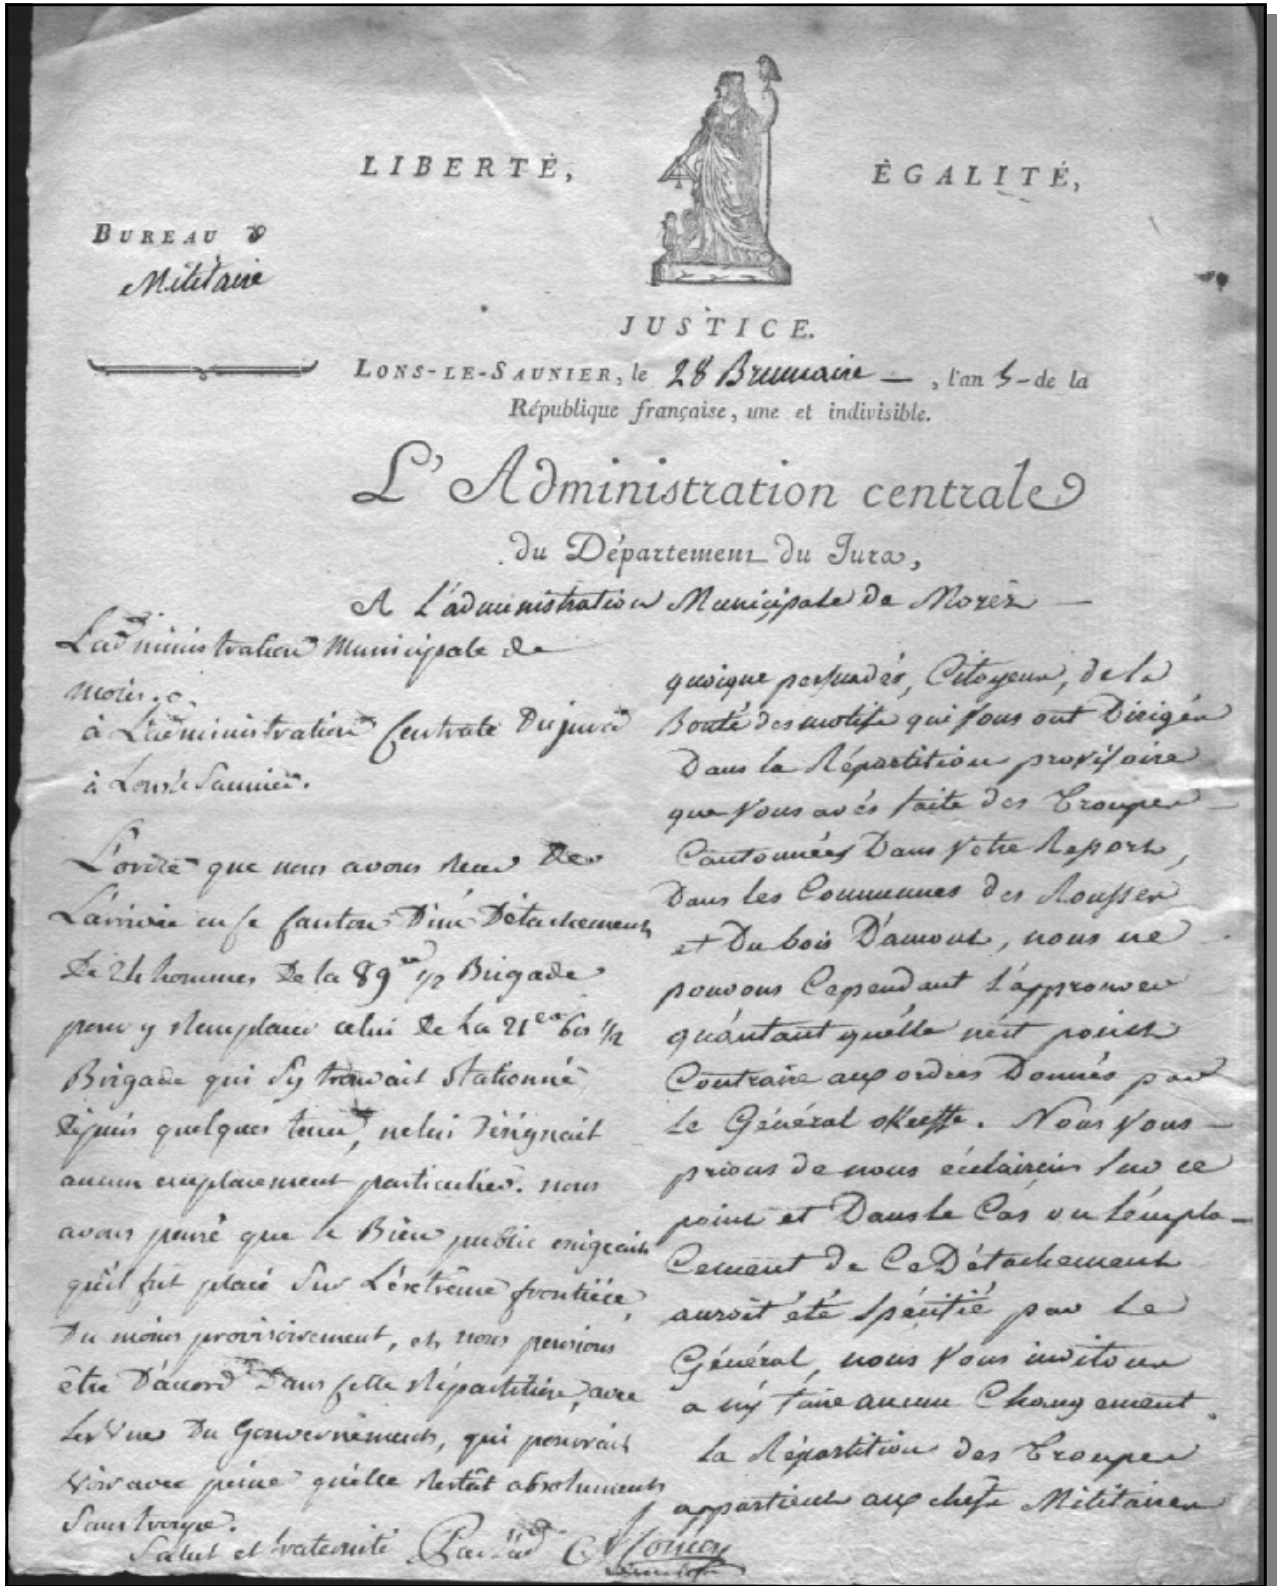 LIBERTÉ,
ÉGALITÉ,
BUREAU
Militaire
JUSTICE.
LONS-LE-SAUNIER, le 28 Brumaire — , l'an 5 - de la
République française, une et indivisible.
L'Administration centrale
du Département du Jura,
A L'administration Municipale de Morez —
L'administration Municipale de
morez.
à L'administration Centrale Du jura
à Lons le Saunier.
L'ordre que nous avons reçu de
L'arrivée en ce Canton D'un Détachement
De 24 hommes De la 89me 1/2 Brigade
pour y remplacer celui De La 21eme bis 1/2
Brigade qui s'y trouvait stationné
depuis quelques tems, ne lui désignait
aucun emplacement particulier. nous
avons pensé que le Bien public exigeait
qu'il fut placé sur L'extrême frontière,
Du moins provisoirement, et nous pensions
être D'accord Dans cette Répartition, avec
Les Vues Du Gouvernement, qui pourrait
voir avec peine qu'elle restât absolument
sans troupe.
Salut et fraternité
quoique persuadés, Citoyens, de la
Bonté des motifs qui vous ont Dirigés
Dans la Répartition provisoire
que vous avés faite des Troupes
Cantonnées Dans votre Ressort,
Dans les Communes des Rousses
et Du bois D'amont, nous ne
pouvons Cependant L'approuver
qu'autant qu'elle n'est point
Contraire aux ordres Donnés par
Le Général okeeffe. Nous vous
prions de nous éclaircir sur ce
point et Dans le Cas ou L'empla-
Cement de Ce Détachement
auroit été spécifié par Le
Général, nous vous invitons
a n'y faire aucun Changement.
La Répartition des Troupes
appartient aux chefs Militaires